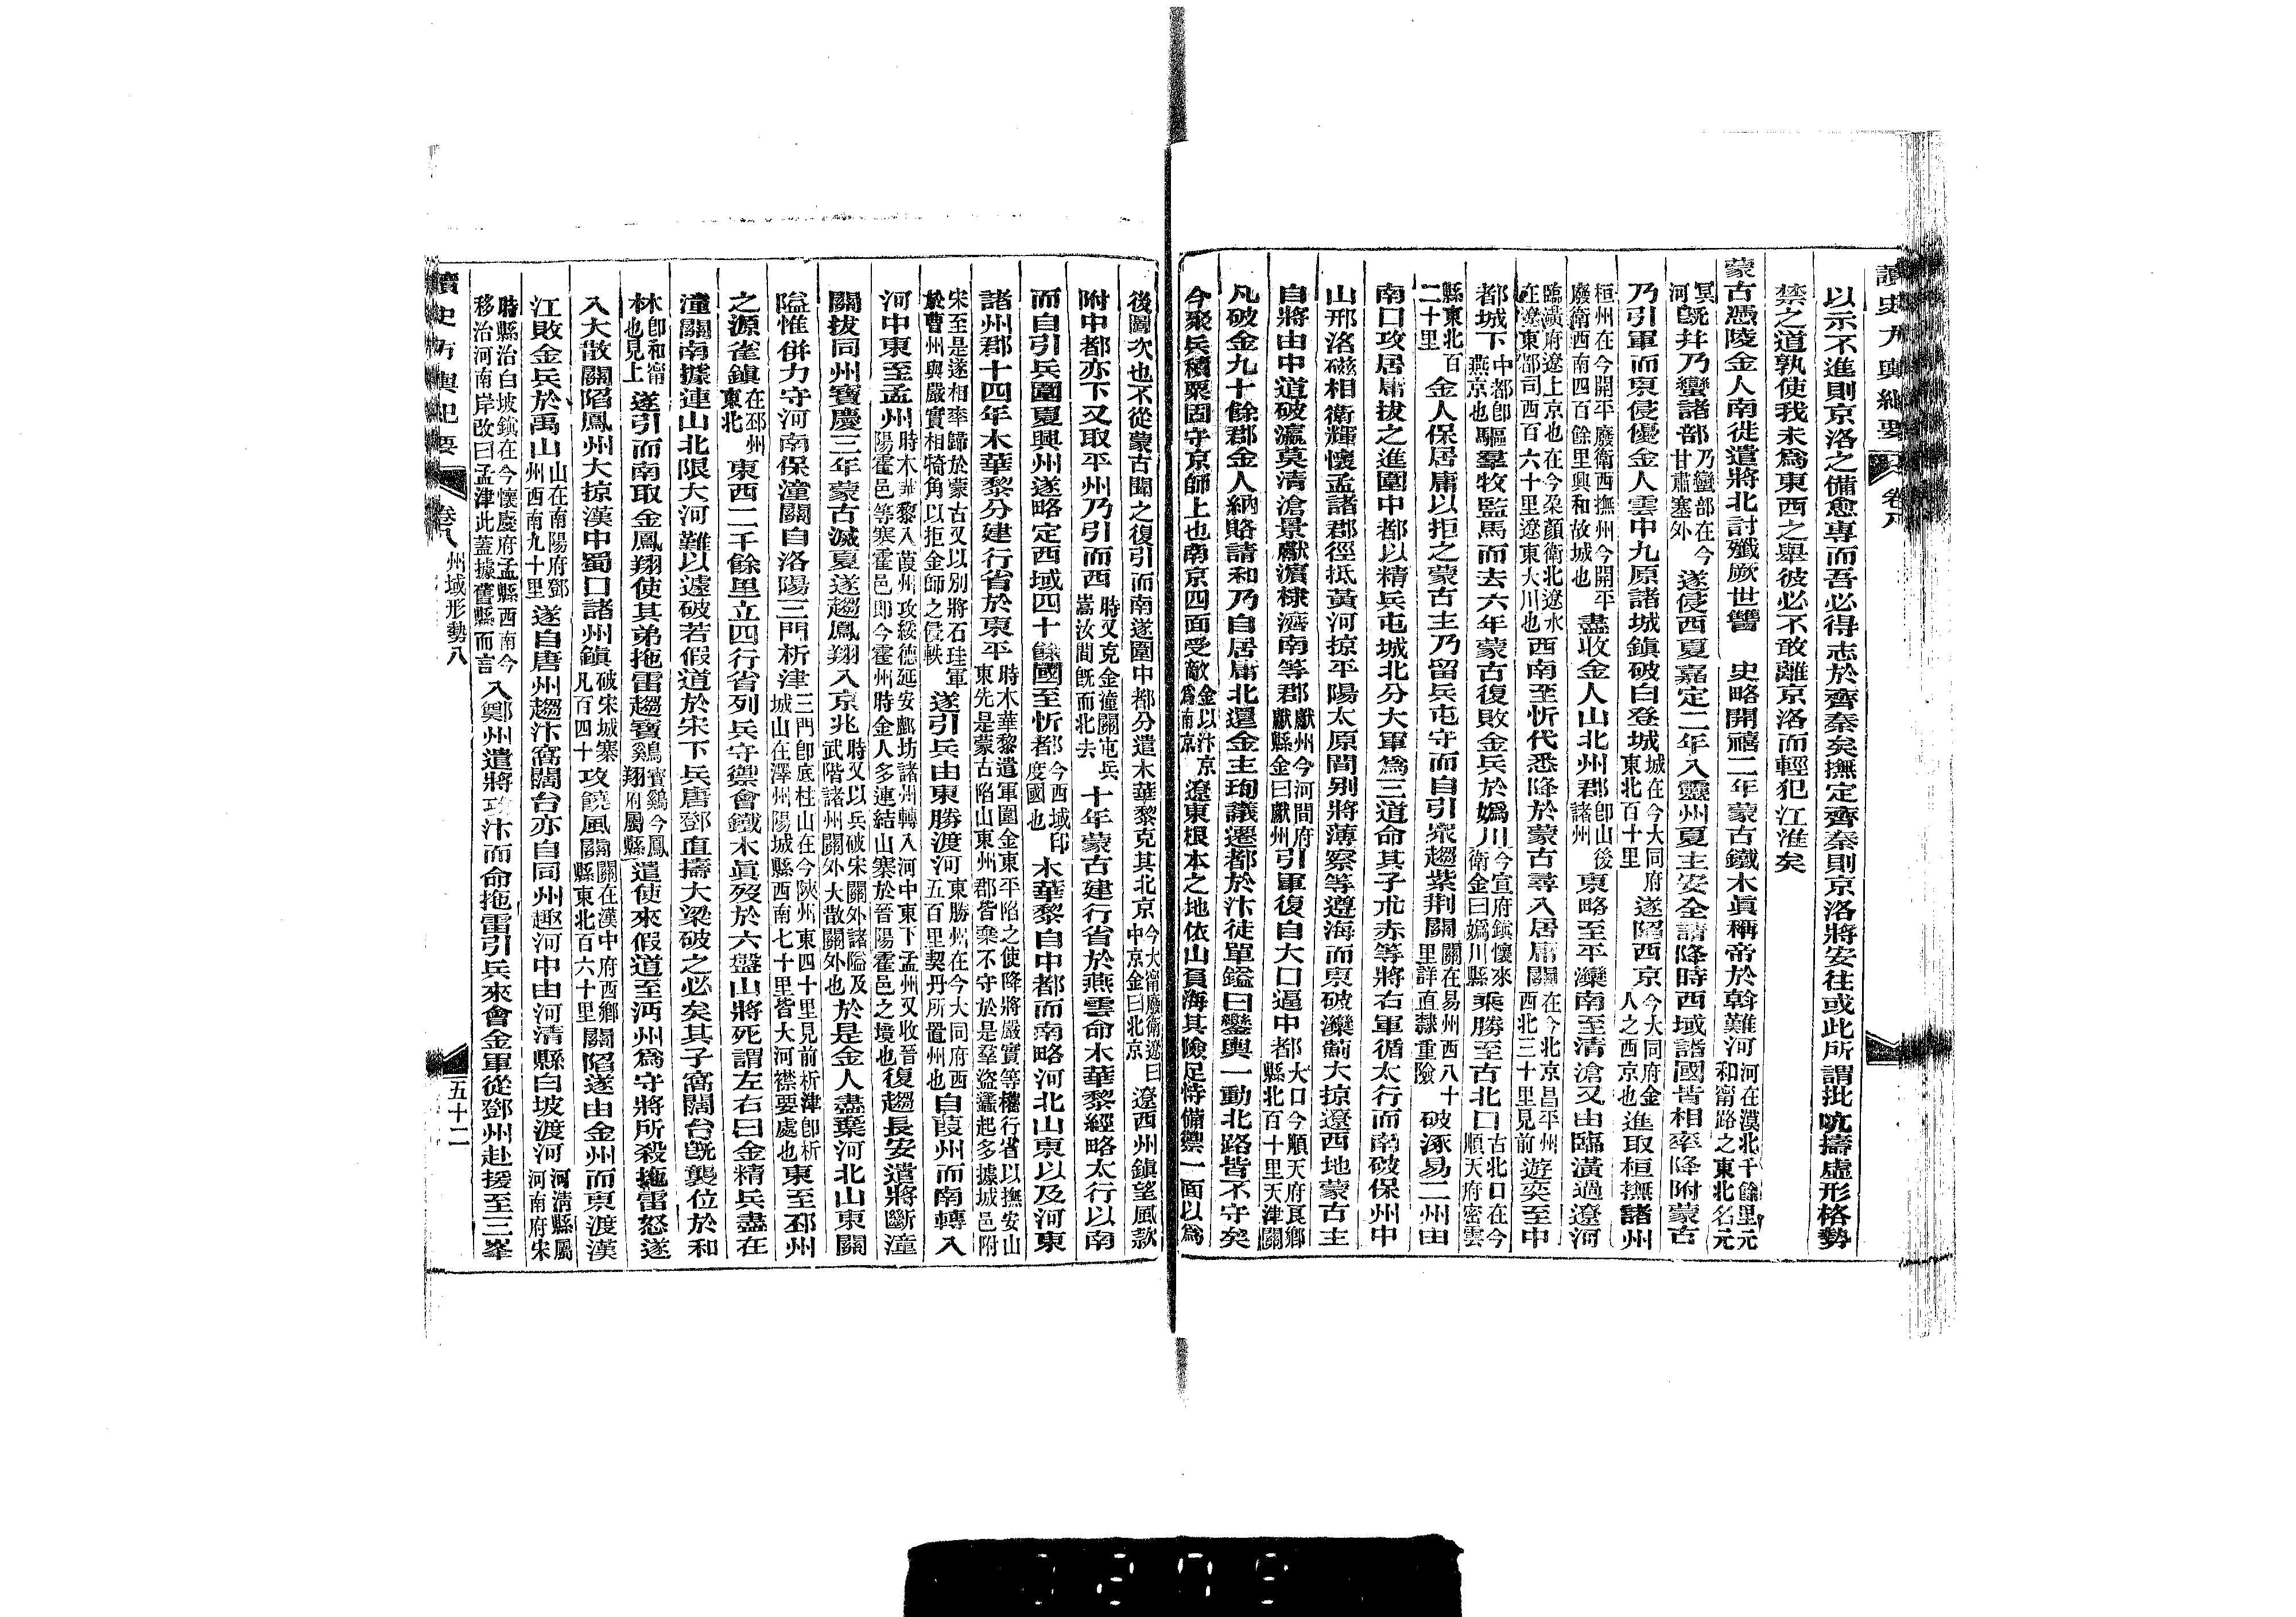 讀史方輿紀要 卷八
以示不進則京洛之備愈專而吾必得志於齊秦矣撫定齊秦則京洛將安往或此所謂批吭擣虛形格勢
禁之道孰使我未為東西之舉彼必不敢離京洛而輕犯江淮矣
蒙古憑陵金人南徙遣將北討殲厥世讐 史略開禧二年蒙古鐵木眞稱帝於斡難河河在漠北千餘里元和甯路之東北名元
河旣幷乃蠻諸部乃蠻部在今甘肅塞外遂侵西夏嘉定二年入靈州夏主安全請降時西域諸國皆相率降附蒙古
乃引軍而東侵優金人雲中九原諸城鎮破白登城城在今大同府東北百十里遂陷西京今大同府金人之西京也進取桓撫諸州
桓州在今開平廢衛西撫州今開平廢衛西南四百餘里興和故城也盡收金人山北州郡卽山後諸州東略至平灤南至清滄又由臨潢過遼河
臨潢府遼上京也在今朶顏衛北遼水在遼東都司西百六十里遼東大川也西南至忻代悉降於蒙古尋入居庸關在今北京昌平州西北三十里見前遊奕至中
都城下中都卽燕京也驅羣牧監馬而去六年蒙古復敗金兵於嬀川今宣府鎮懷來衛金曰嬀川縣乘勝至古北口古北口在今順天府密雲
縣東北百二十里金人保居庸以拒之蒙古主乃留兵屯守而自引衆趨紫荆關關在易州西八十里詳直隸重險破涿易二州由
南口攻居庸拔之進圍中都以精兵屯城北分大軍為三道命其子朮赤等將右軍循太行而南破保州中
山邢洺磁相衛輝懷孟諸郡徑抵黃河掠平陽太原間別將薄察等遵海而東破灤薊大掠遼西地蒙古主
自將由中道破瀛莫清滄景獻濱棣濟南等郡獻州今河間府獻縣金曰獻州引軍復自大口逼中都大口今順天府良鄉縣北百十里天津關
凡破金九十餘郡金人納賂請和乃自居庸北還金主珣議遷都於汴徒單鎰曰鑾輿一動北路皆不守矣
今聚兵積粟固守京師上也南京四面受敵金以汴京為南京遼東根本之地依山負海其險足恃備禦一面以為
後圖次也不從蒙古聞之復引而南遂圍中都分遣木華黎克其北京今大甯廢衛遼曰中京金曰北京遼西州鎮望風款
附中都亦下又取平州乃引而西時又克金潼關屯兵嵩汝間旣而北去十年蒙古建行省於燕雲命木華黎經略太行以南
而自引兵圍夏興州遂略定西域四十餘國至忻都今西域印度國也木華黎自中都而南略河北山東以及河東
諸州郡十四年木華黎分建行省於東平時木華黎遣軍圍金東平陷之使降將嚴實等權行省以撫安山東先是蒙古陷山東州郡皆棄不守於是羣盜蠭起多據城邑附
宋至是遂相率歸於蒙古又以別將石珪軍於曹州與嚴實相犄角以拒金師之侵軼遂引兵由東勝渡河東勝州在今大同府西五百里契丹所置州也自葭州而南轉入
河中東至孟州時木華黎入葭州攻綏德延安鄜坊諸州轉入河中東下孟州又收晉陽霍邑等寨霍邑卽今霍州時金人多連結山寨於晉陽霍邑之境也復趨長安遣將斷潼
關拔同州寶慶三年蒙古滅夏遂趨鳳翔入京兆時又以兵破宋關外諸隘及武階諸州關外大散關外也於是金人盡棄河北山東關
隘惟併力守河南保潼關自洛陽三門析津三門卽底柱山在今陝州東四十里見前析津卽析城山在澤州陽城縣西南七十里皆大河襟要處也東至邳州
之源雀鎮在邳州東北東西二千餘里立四行省列兵守禦會鐵木眞歿於六盤山將死謂左右曰金精兵盡在
潼關南據連山北限大河難以遽破若假道於宋下兵唐鄧直擣大梁破之必矣其子窩闊台旣襲位於和
林卽和甯也見上遂引而南取金鳳翔使其弟拖雷趨寶雞寶雞今鳳翔府屬縣遣使來假道至沔州為守將所殺拖雷怒遂
入大散關陷鳳州大掠漢中蜀口諸州鎮破宋城寨凡百四十攻饒風關關在漢中府西鄉縣東北百六十里關陷遂由金州而東渡漢
江敗金兵於禹山山在南陽府鄧州西南九十里遂自唐州趨汴窩闊台亦自同州趣河中由河清縣白坡渡河河清縣屬河南府宋
時縣治白坡鎮在今懷慶府孟縣西南今移治河南岸改曰孟津此蓋據舊縣而言入鄭州遣將攻汴而命拖雷引兵來會金軍從鄧州赴援至三峯
讀史方輿紀要 卷八 州域形勢八 五十二